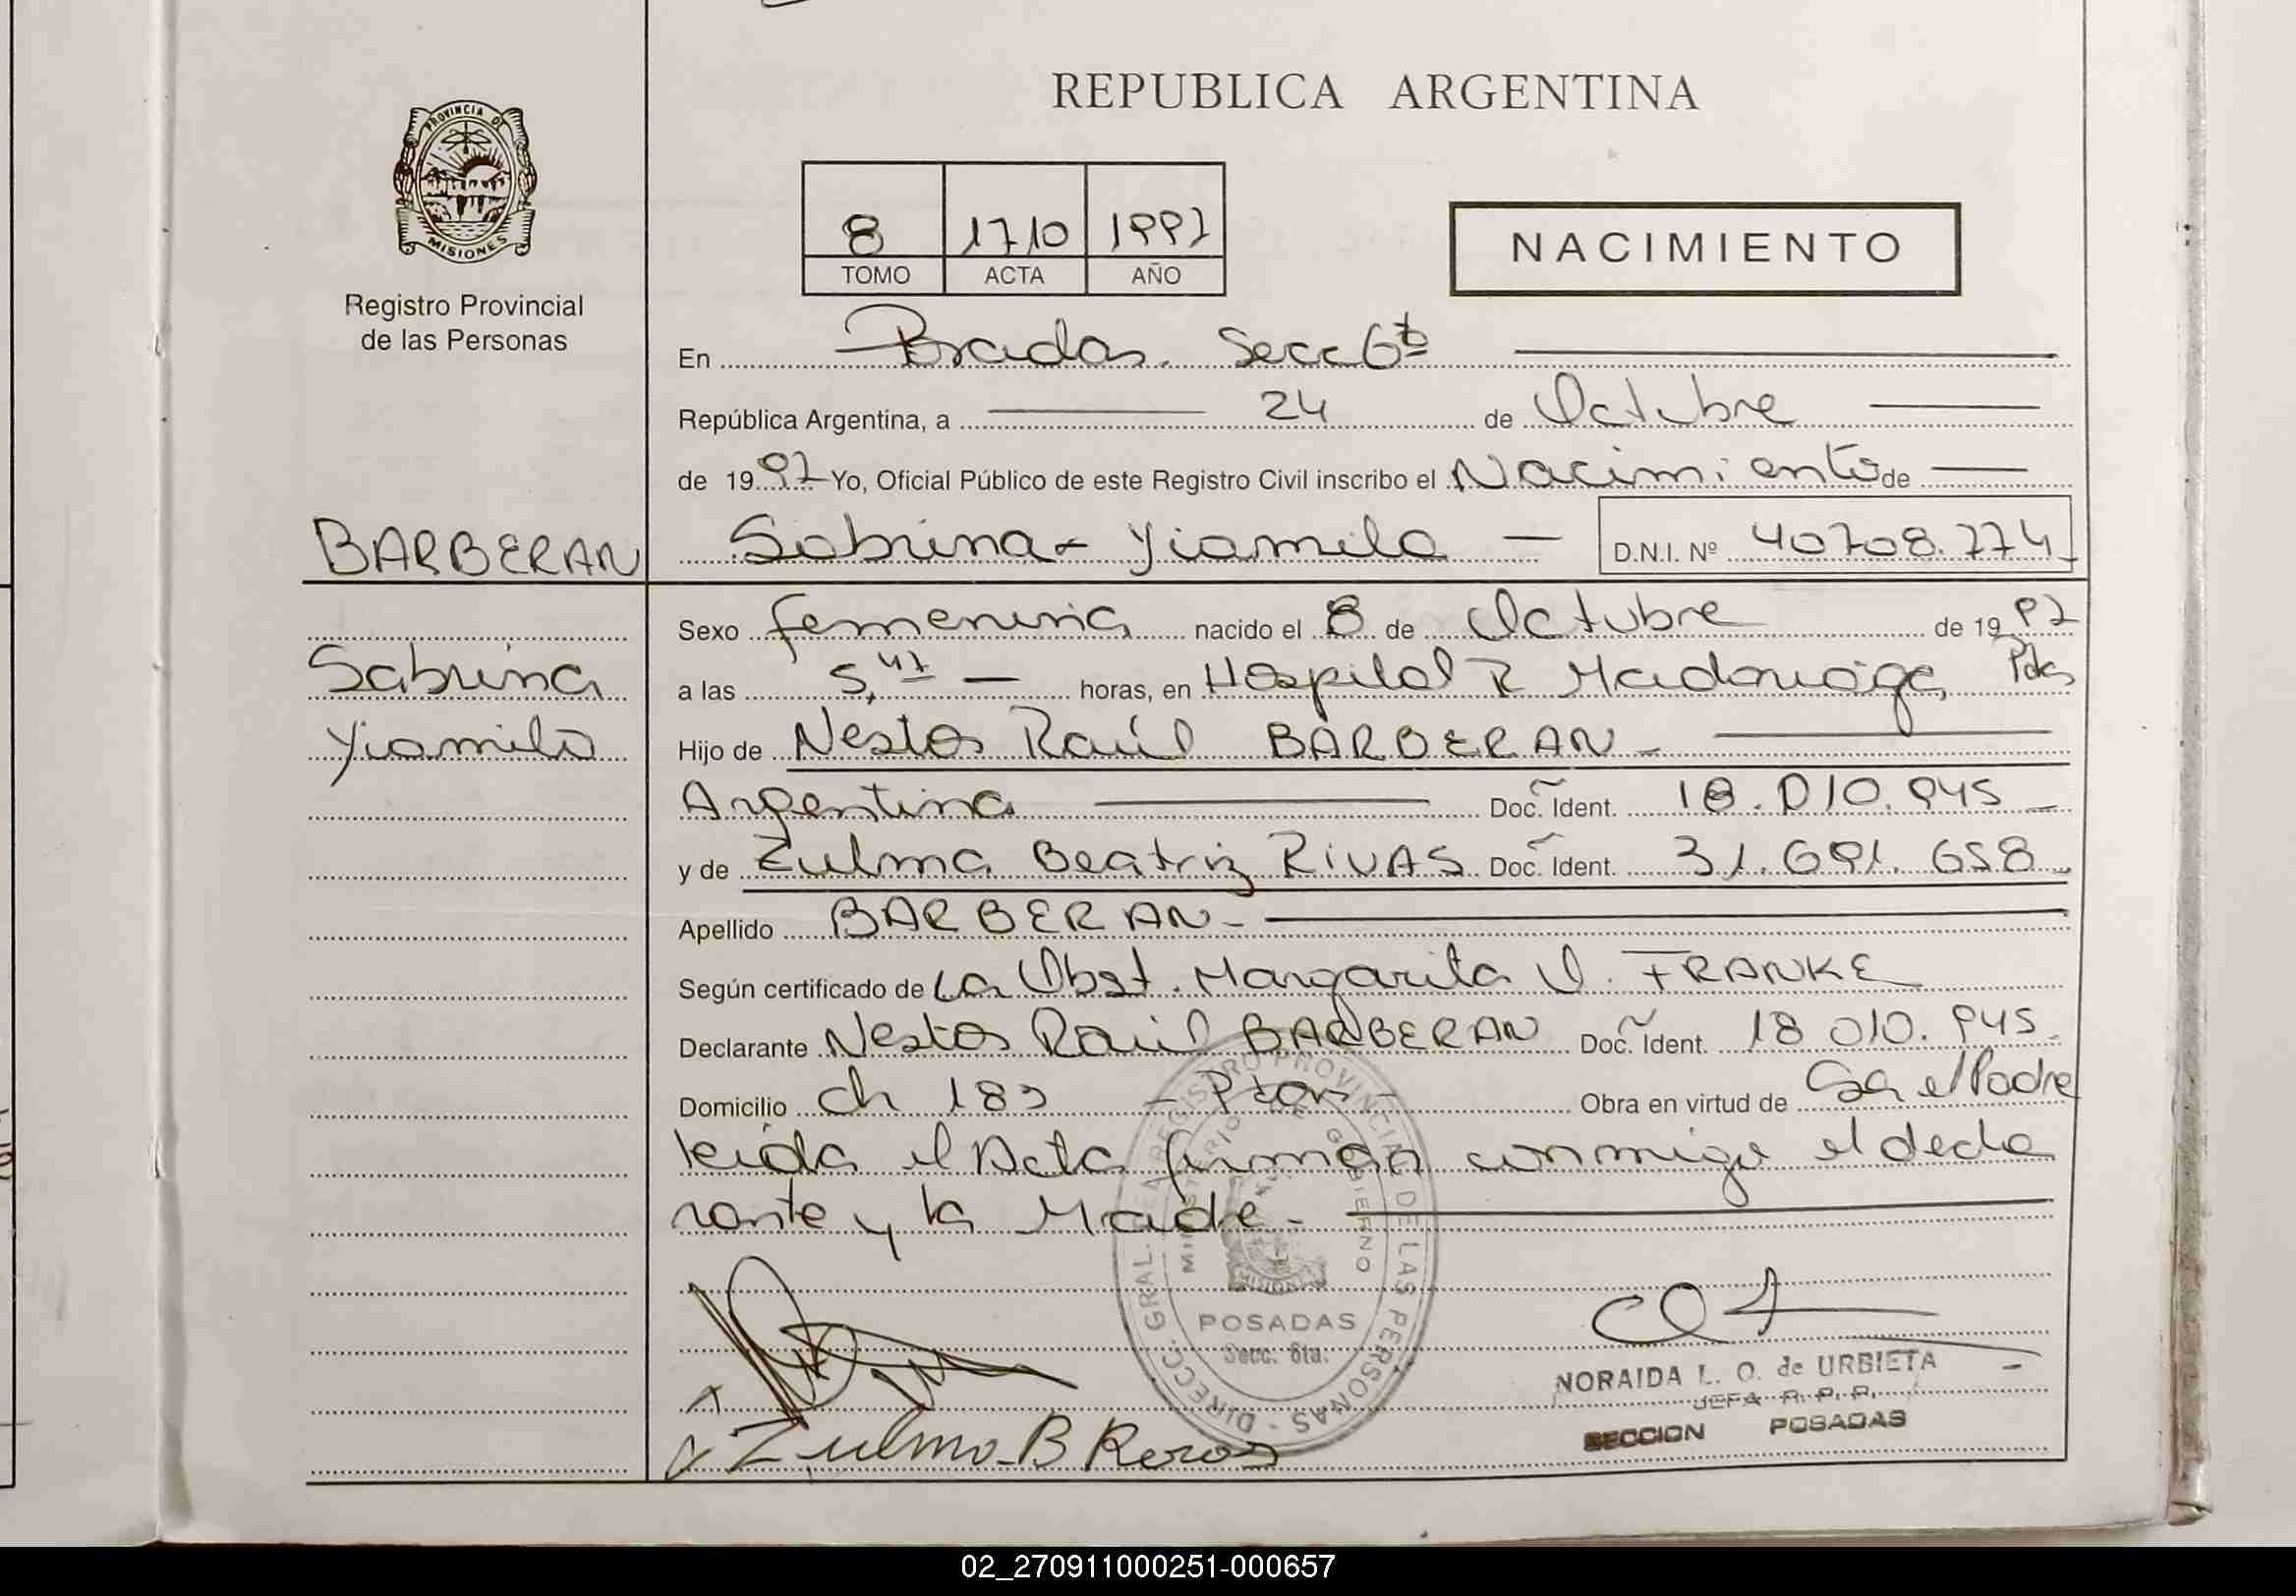 REPUBLICA ARGENTINA
PROVINCIA DE
MISIONES
Registro Provincial
de las Personas
8 1710 1997
TOMO ACTA AÑO
NACIMIENTO
En Posadas. Secc 6ta
República Argentina, a 24 de Octubre
de 1997 Yo, Oficial Público de este Registro Civil inscribo el Nacimiento de
BARBERAN
Sabrina Yiamila D.N.I. Nº 40708.774
Sabrina
Yiamila
Sexo femenina nacido el 8 de Octubre de 1997
a las 5,47 horas, en Hospital R Madariaga, Pdas
Hijo de Nestor Raúl BARBERAN
Argentina Doc. Ident. 18.010.945
y de Zulma Beatriz RIVAS Doc. Ident. 31.691.658
Apellido BARBERAN
Según certificado de La Obst. Margarita O. FRANKE
Declarante Nestor Raúl BARBERAN Doc. Ident. 18 010.945
Domicilio ch 183 Obra en virtud de el Padre
leida el Acta firman conmigo el decla
rante y la Madre
DIRECC. GRAL. REGISTRO PROVINCIAL DE LAS PERSONAS
MINISTERIO DE GOBIERNO
MISIONES
POSADAS
Secc. 6ta.
NORAIDA L. O. de URBIETA
JEFA R. P. P.
SECCION POSADAS
Zulma B
02_270911000251-000657